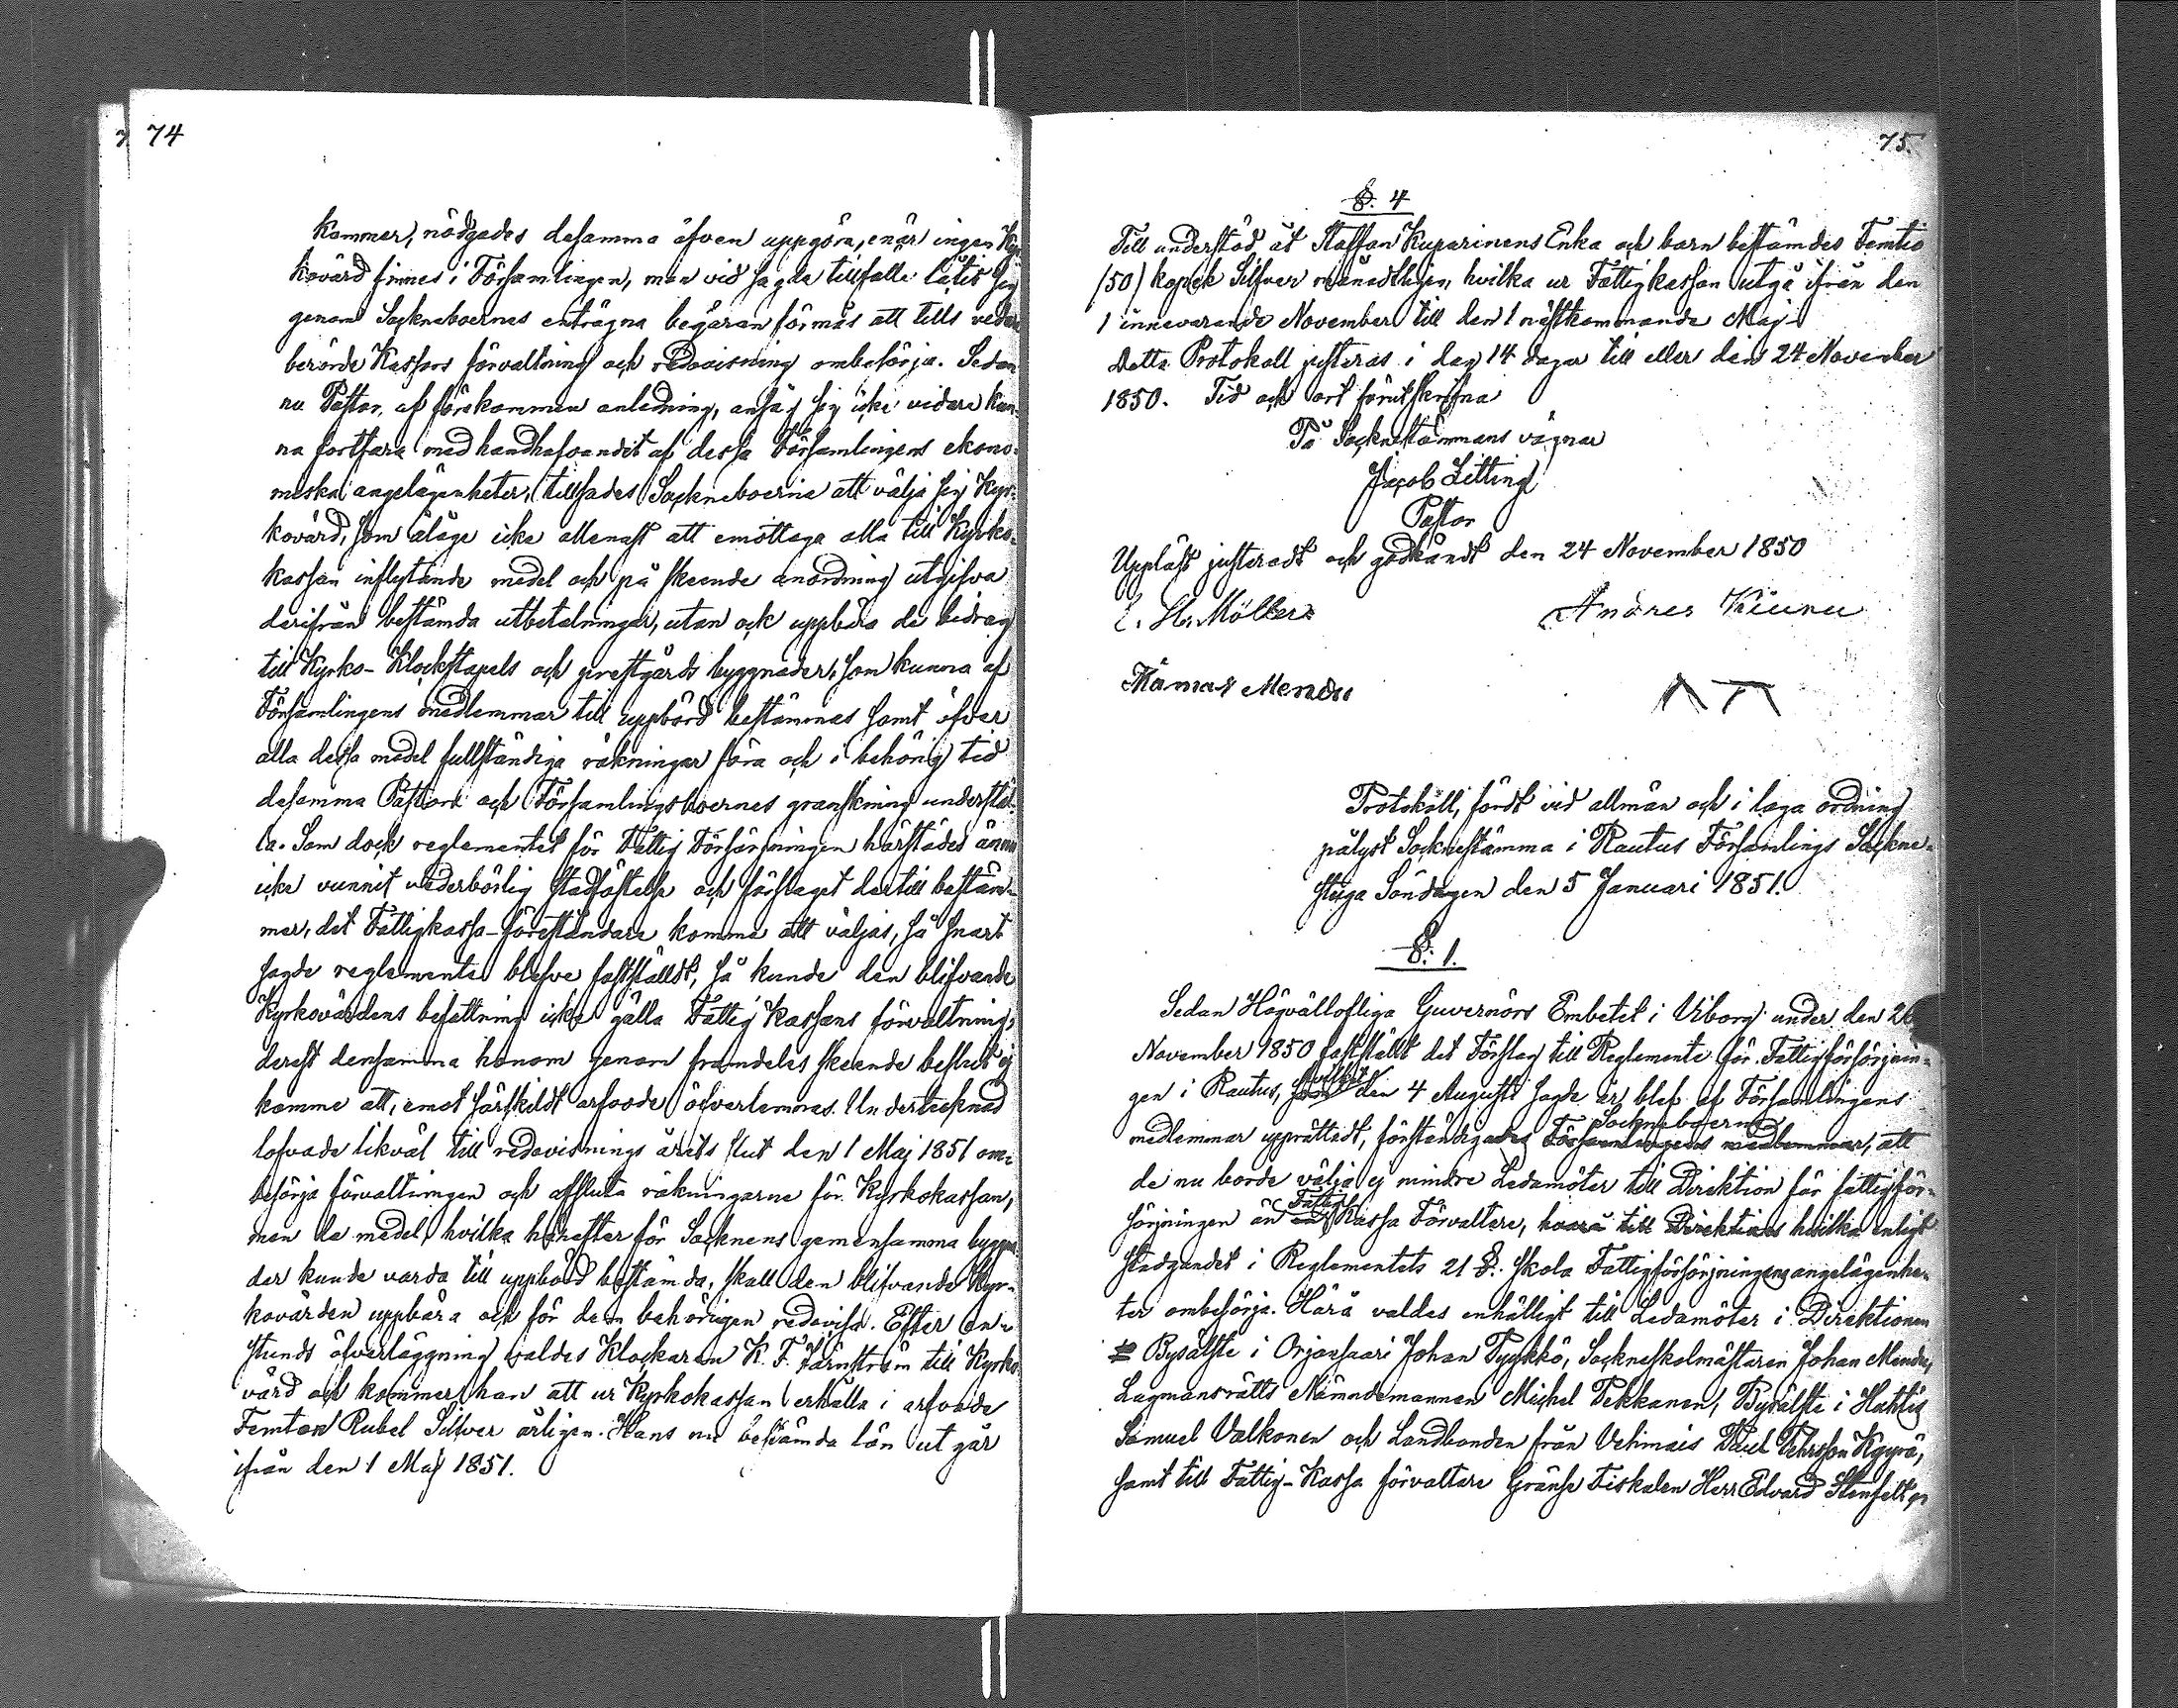 74
kommer, nödgades desamma äfven uppgöra, enär ingen Kyr-
kovärd finnes i Församlingen, men vid sagda tillfälle låtit sig
genom Socknboernas enträgna begäran förmås att tills vidare
berörde Kassors förvaltning och redovisning ombesörja. Sedan
nu Pastor, af förekommen anledning, ansåg sig icke vidare kun-
na fortfara med handhafvandet af dessa Församlingens ekono-
miska angelägenheter, tillsades Sockneboerne att välja sig Kyr-
kovärd, som ålåge icke allenast att emottaga alla till Kyrko-
kassan inflytande medel och på skeende anordning utgifva
derifrån bestämda utbetalningar, utan ock uppbära de bidrag
till Kyrko- Klockstapels och prestgårds byggnader, som kunna af
Församlingens medlemmar till uppbörd bestämmas samt öfver
alla dessa medel fullständiga räkningar föra och i behörig tid
desamma Pastors och Församlingsboernes granskning underställ-
la. Som dock reglementet för Fattig Försörjningen härstädes ännu
icke vunnit vederbörlig stadfästelse och förslaget dertill bestäm-
mer, det Fattigkassa-föreståndare komme att väljas, så snart
sagde reglemente blefve fastställdt, så kunde den blifvande
Kyrkovärdens befattning icke gälla Fattig Kassans förvaltning,
derest densamma honom genom framdeles skeende beslut ej
komme att, emot särskildt arfvode öfverlemnas. Undertecknad
lofvade likväl till redovisnings årets slut den 1 Maj 1851 om-
besörja förvaltningen och afsluta räkningarne för Kyrkokassan,
men de medel, hvilka härefter för Socknens gemensamma byggna-
der kunde varda till uppbörd bestämda, skall den blifvande Kyr-
kovärden uppbära och för dem behörigen redovisa. Efter en
stunds öfverläggning valdes Klockaren K. F. Järnström till Kyrko-
värd och kommer han att ur Kyrkokassan erhålla i arfvode
Femton Rubel Silfver årligen. Hans nu bestämda lön utgår
ifrån den 1 Maj 1851.
75.
§. 4
Till understöd åt Staffan Kuparinens Enka och barn bestämdes Femtio
(50) kopek Silfver månadtligen, hvilka ur Fattigkassan utgå ifrån den
1 innevarande November till den 1 nästkommande Maj.
Detta Protokoll justeras i dag 14 dagar till eller den 24 November
1850. Tid och ort förutskrifna
På Socknestämmans vägnar
Jacob Zitting
Pastor
Uppläst justeradt och godkändt den 24 November 1850
E. Möller
Andres Kiuru
Tämas Mendu
Protokoll, fördt vid allmän och i laga ordning
pålyst Socknestämma i Rautus Församlings Sockne-
stuga Söndagen den 5 Januari 1851.
§. 1.
Sedan Högvällofliga Guvernörs Embetet i Viborg under den 26
November 1850 fastställt det Förslag till Reglemente för Fattigförsörjnin-
gen i Rautus, hvilket den 4 Augusti sagde år blef af Församlingens
medlemmar upprättadt, förständigades Församlingens medlemmar Sockneboerne, att
de nu borde välja ej mindre Ledamöter till Direktion för fattigför-
sörjningen än Fattig Kassa Förvaltare, hvara till Direktions hvilka enligt
stadgandet i Reglementets 21 §. skola Fattigförsörjningens angelägenhe-
ter ombesörja. Härå valdes enhälligt till Ledamöter i Direktionen
Byålste i Orjansaari Johan Tyykkö, Sockneskolmästaren Johan Mendu,
Lagmansrätts Nämndemannen Michel Pekkanen, Byålste i Hattis
Samuel Valkonen och Landbonden från Vehmais Paul Pehrsson Kyyrö,
samt till Fattig-Kassa förvaltare Gräns Fiskalen Herr Edvard Stenfelt,